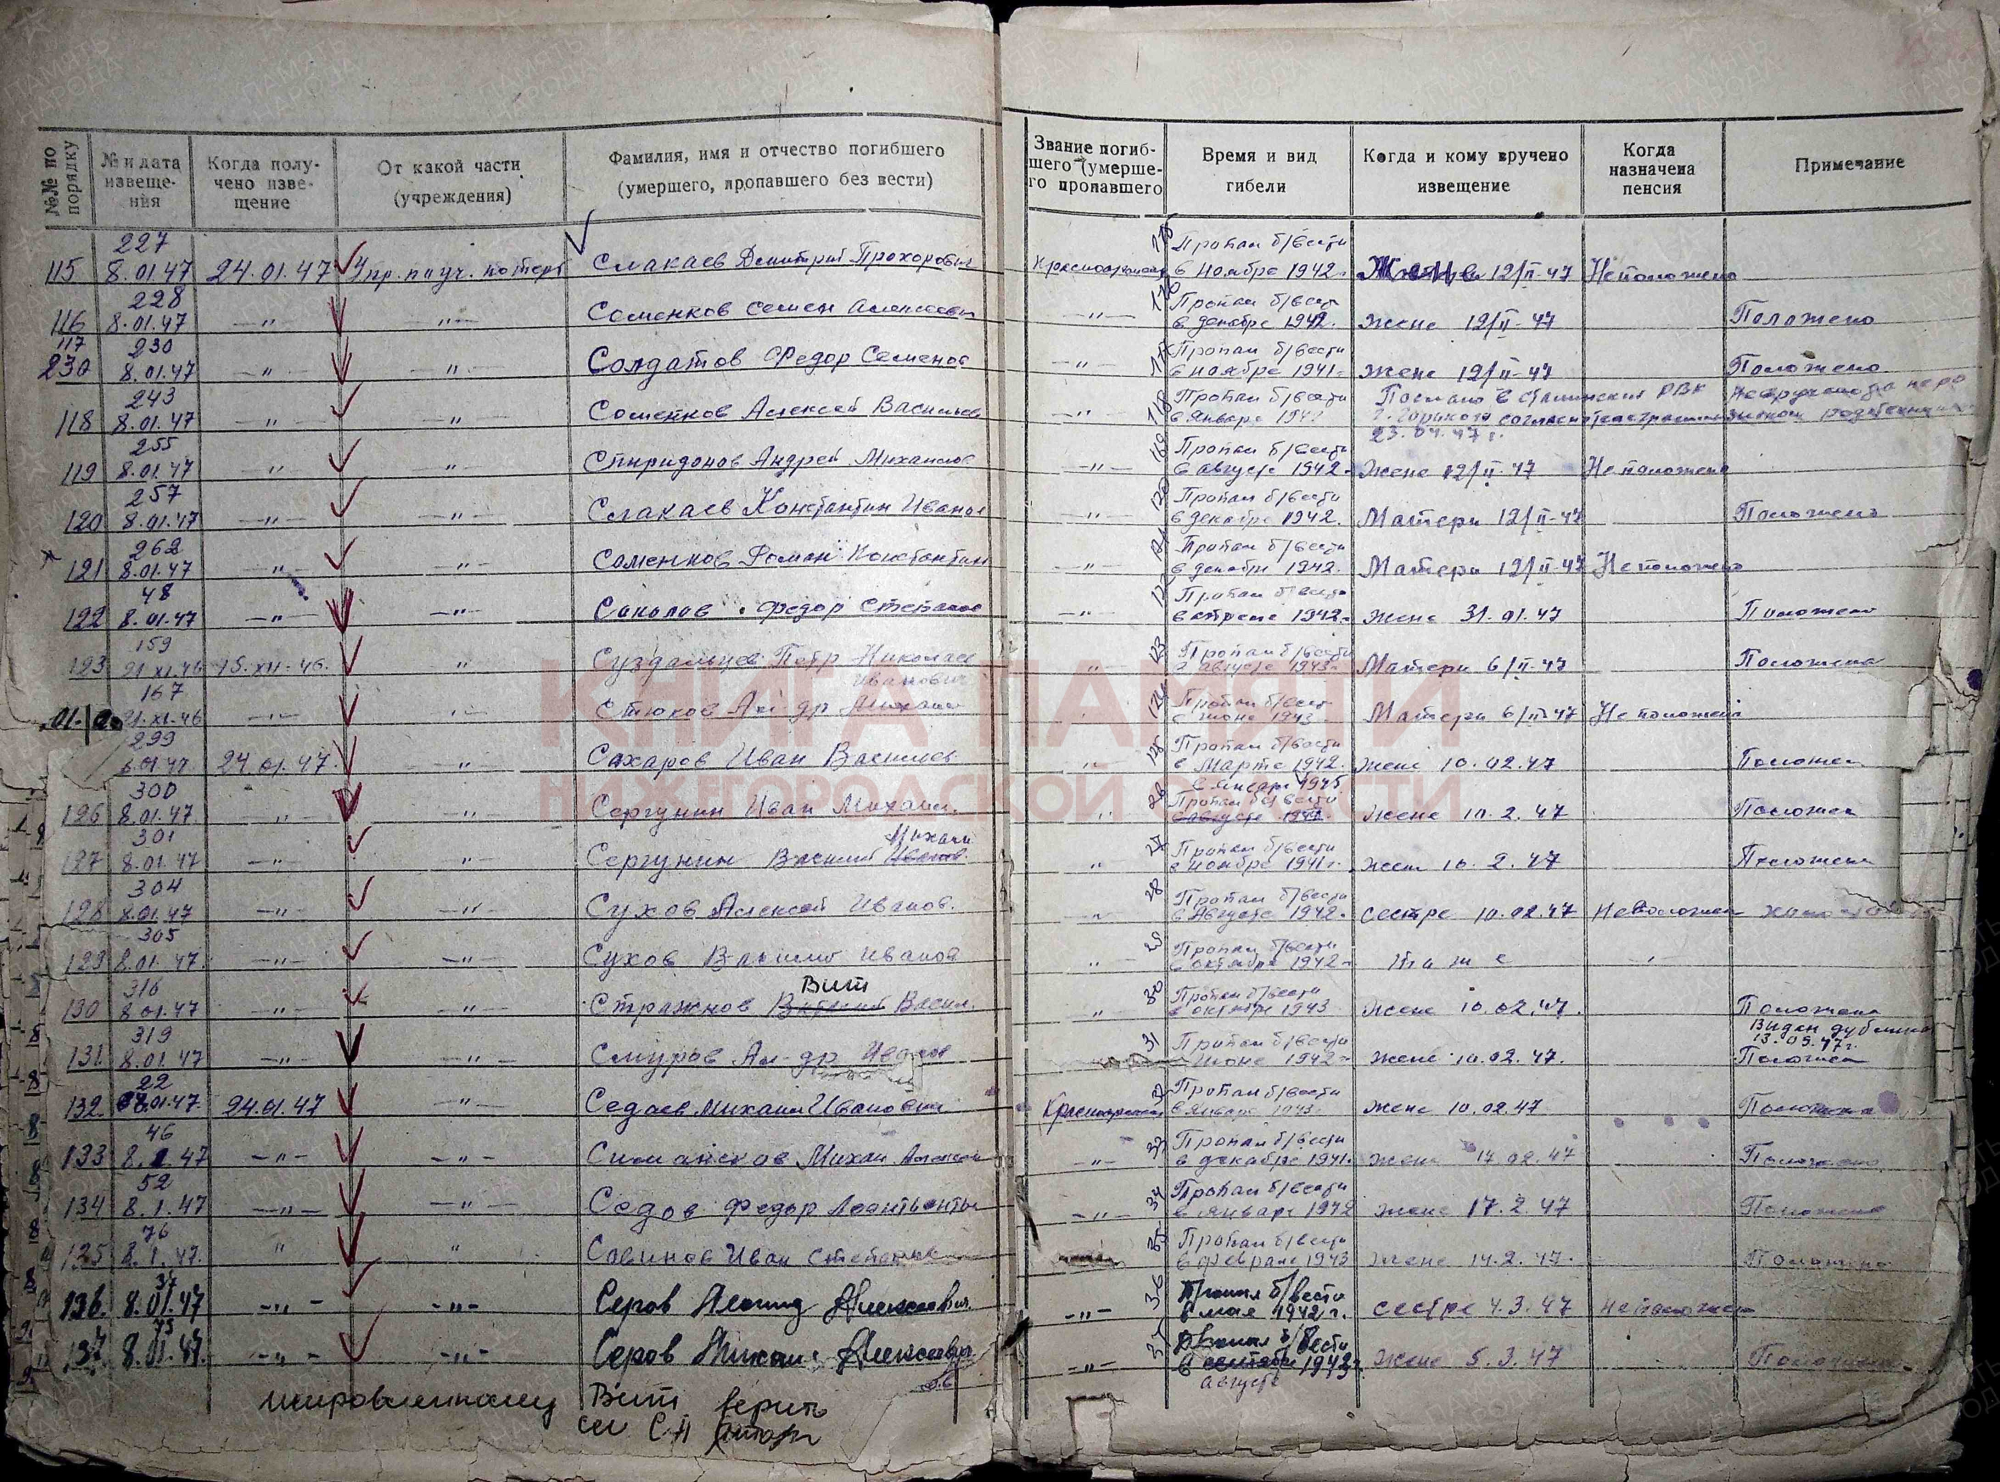 №№ по порядку
№ и дата извещения
Когда получено извещение
От какой части (учреждения)
Фамилия, имя и отчество погибшего (умершего, пропавшего без вести)
Звание погибшего (умершего пропавшего
Время и вид гибели
Когда и кому вручено извещение
Когда назначена пенсия
Примечание
115 227 8.01.47 24.01.47 Упр. по уч. потерь Слакаев Дмитрий Прохорович Красноармеец Пропал б/вести в ноябре 1942 12/II-47 Не положено
116 228 8.01.47 —"— —"— Соменков Семен Алексеевич —"— Пропал б/вести в декабре 1942. Жене 12/II-47 Положено
117 230 230 8.01.47 —"— " Солдатов Федор Семенов —"— Пропал б/вести в ноябре 1941. Жене 12/II-47 Положено
118 243 8.01.47 " " Соменков Алексей Васильев —"— Пропал б/вести в Январе Послано в Сталинский РВК г. Горького 23.04.47 г.
119 255 8.01.47 " " Спиридонов Андрей Михайлов —"— Пропал б/вести в августе 1942. Жене 12/II-47 Не положено
120 257 8.01.47 —"— —"— Слакаев Константин Иванов " Пропал б/вести в декабре 1942. Матери 12/II-47 Положено
121 262 8.01.47 —"— —"— Соменков Роман Константин —"— Пропал б/вести в декабре 1942. Матери 12/II-47 Не положено
122 48 8.01.47 —"— —"— Соколов Федор Степанов —"— Пропал б/вести 1942. Жене 31.01.47 Положено
123 159 21.XI.46 15.XII-46. " Суздальцев Петр Николаев Иванович " Пропал б/вести в августе 1943 Матери 6/II-47 Положено
167 21.XI.46 —"— " Стюков Ал-др Михайл Пропал б/вести в июне 1943 Матери 6/II-47 Не положено
299 8.01.47 24.01.47. " Сахаров Иван Васильев " Пропал б/вести в Марте 1942. Жене 10.02.47 Положен
126 300 8.01.47 " —"— Сергунин Иван Михаил. " Пропал без вести в августе 1942 в январе 1945 Жене 10.2.47 Положен
127 301 8.01.47 —"— " Сергунин Василий Иванов. Михайл " Пропал б/вести в Ноябре 1941 г. Жене 10.2.47 Положено
128 304 8.01.47 —"— —"— Сухов Алексей Иванов. " Пропал б/вести в Августе 1942. сестре 10.02.47 Не положен
129 305 8.01.47. —"— —"— Сухов Василий Иванов " Пропал б/вести в октябре 1942
130 316 8.01.47 —"— —"— Стражнов Виталий Васил. Вит " Пропал б/вести в октябре 1943 Жене 10.02.47. Положено
131 319 8.01.47 —"— —"— Смуров Ал-др Иванов Пропал б/вести Июне 1942 Жене 10.02.47. Выдан дубликат 13.05.47 г. Положен
132 22 8.01.47 24.01.47 —"— Седаев Михаил Иванович Красноармеец Пропал б/вести в Январе 1943 Жене 10.02.47 Положено
133 46 8.1.47 —"— —"— Михаил Алексеев —"— Пропал б/вести в декабре 1941. Жене 17.02.47 Положено
134 52 8.1.47 —"— —"— Седов Федор Леонтьев —"— Пропал б/вести в Январе 1942 Жене 17.2.47 Положено
135 76 8.1.47. " " Савинов Иван Степанов Пропал б/вести в феврале 1943 Жене 14.2.47. Положено
136. 37 8.01.47 —"— —"— Серов Леонид Алексеевич. —"— Пропал б/вести в мае 1942 г. сестре 4.3.47 Не положен
137 73 8.01.47. —"— —"— Серов Михаил Алексеевич —"— Пропал б/вести в сентябре 1942 августе Жене 5.3.47 Положено
Вит верить
КНИГА ПАМЯТИ
НИЖЕГОРОДСКОЙ ОБЛАСТИ
ПАМЯТЬ НАРОДА